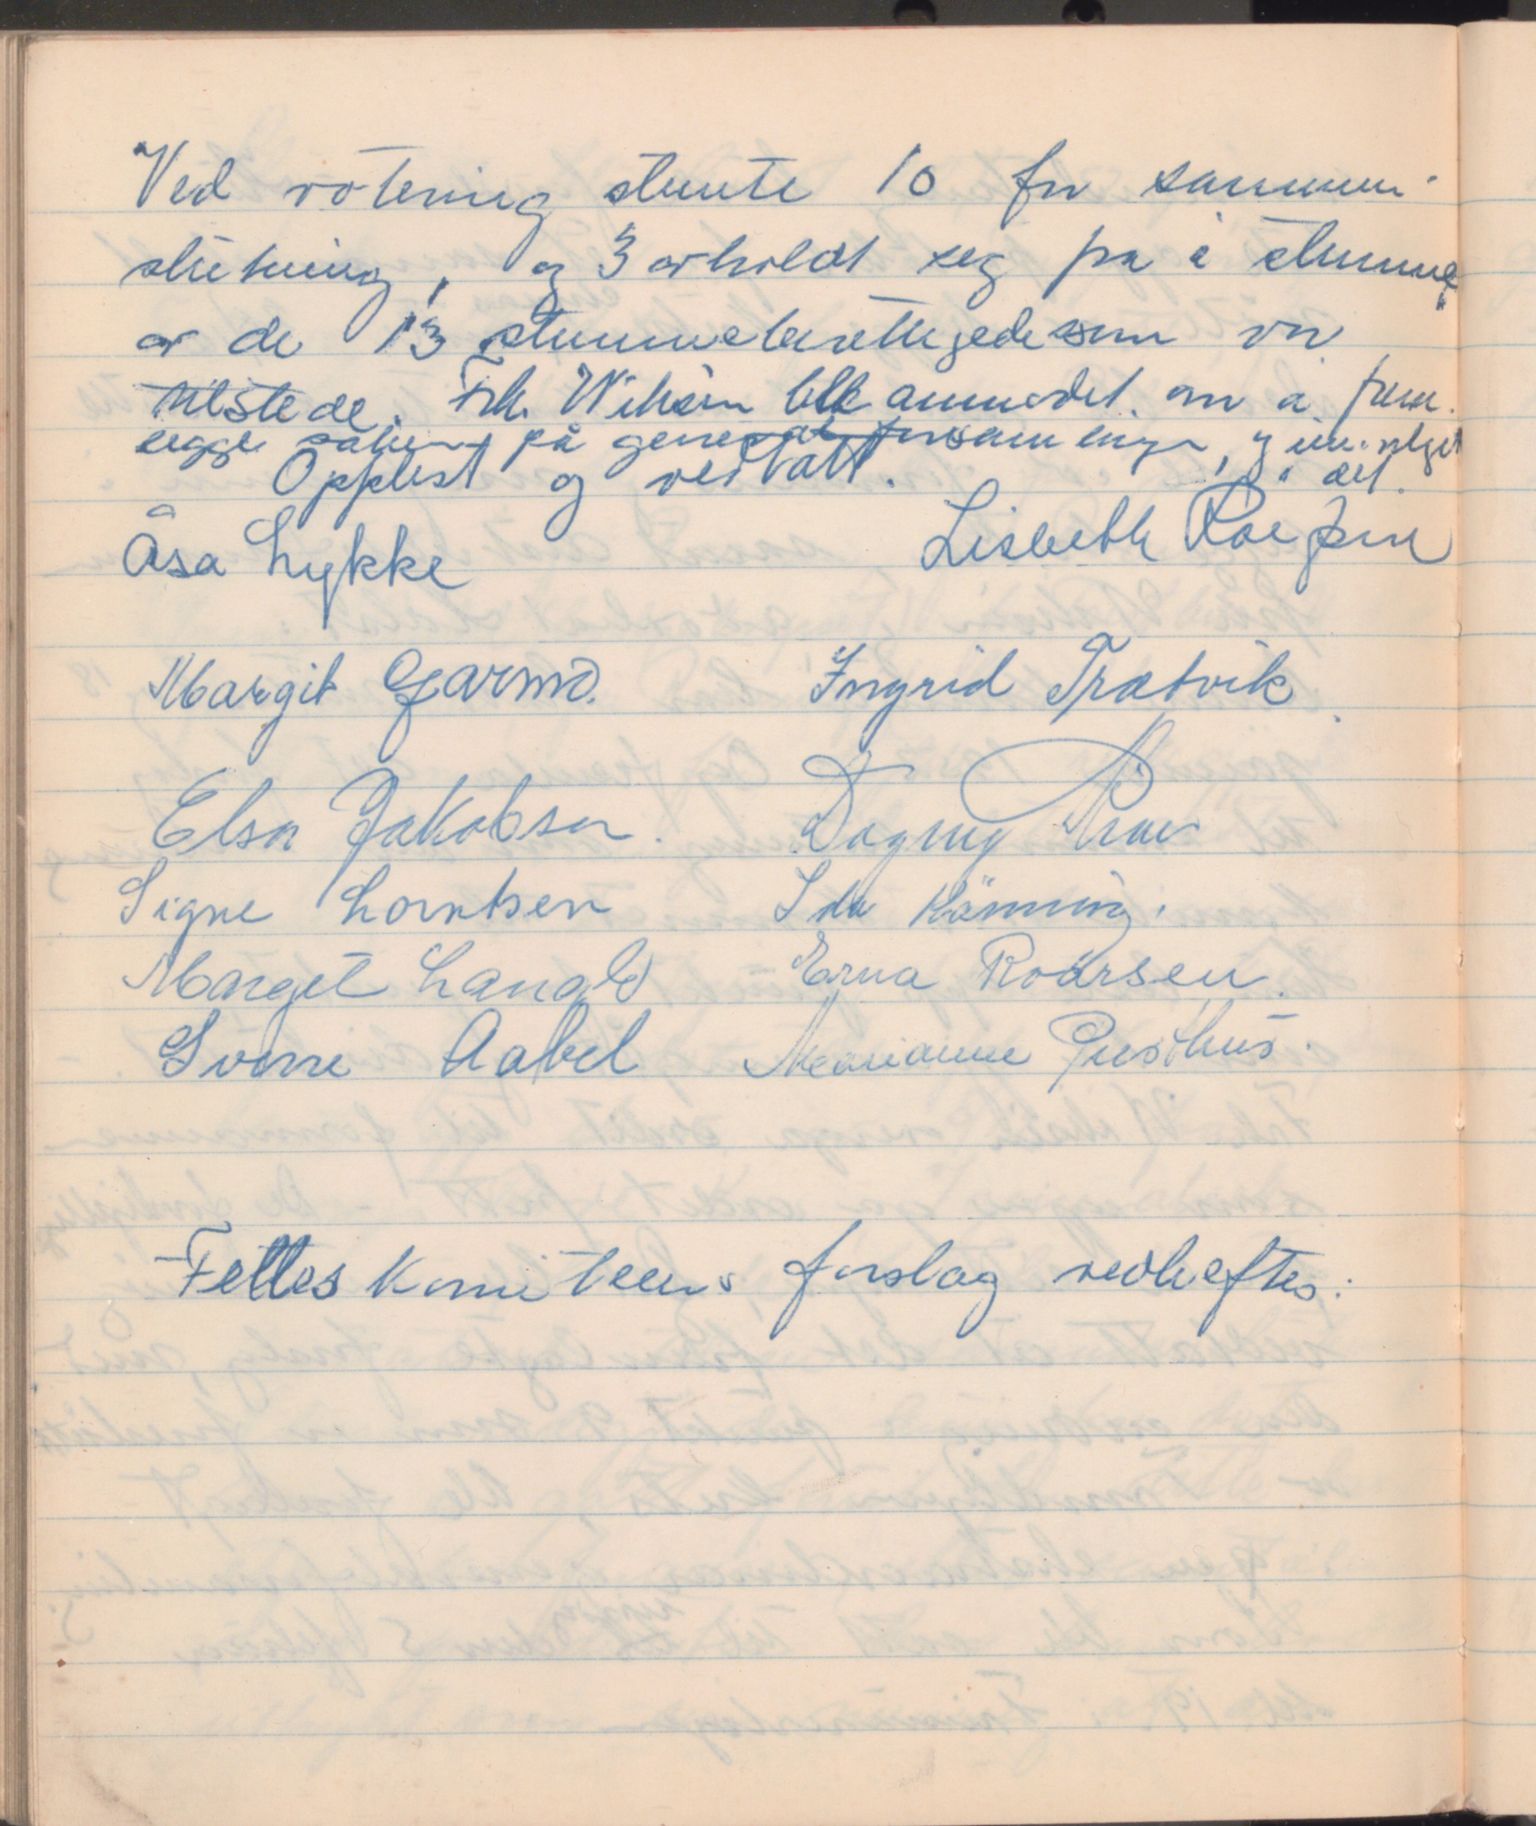 Ved votering stemte 10 for sammen-
slutning, og 3 avholdt seg fra å stemme,
av de 13 stemmeberettigede som var
tilstede. Frk. Wiksen ble anmodet om å frem-
legge saken på generalforsamlingen, og
Opplest og vedtatt. det.
Åsa Lykke Lisbeth
Margit Gjarmo. Ingrid Trætvik
Elsa Jakobsen. Dagny
Signe Lorntsen Ida Rönning.
Marget Langli Erna Roarsen.
Sverre Aabel Marianne
Felleskomiteens forslag vedheftes: